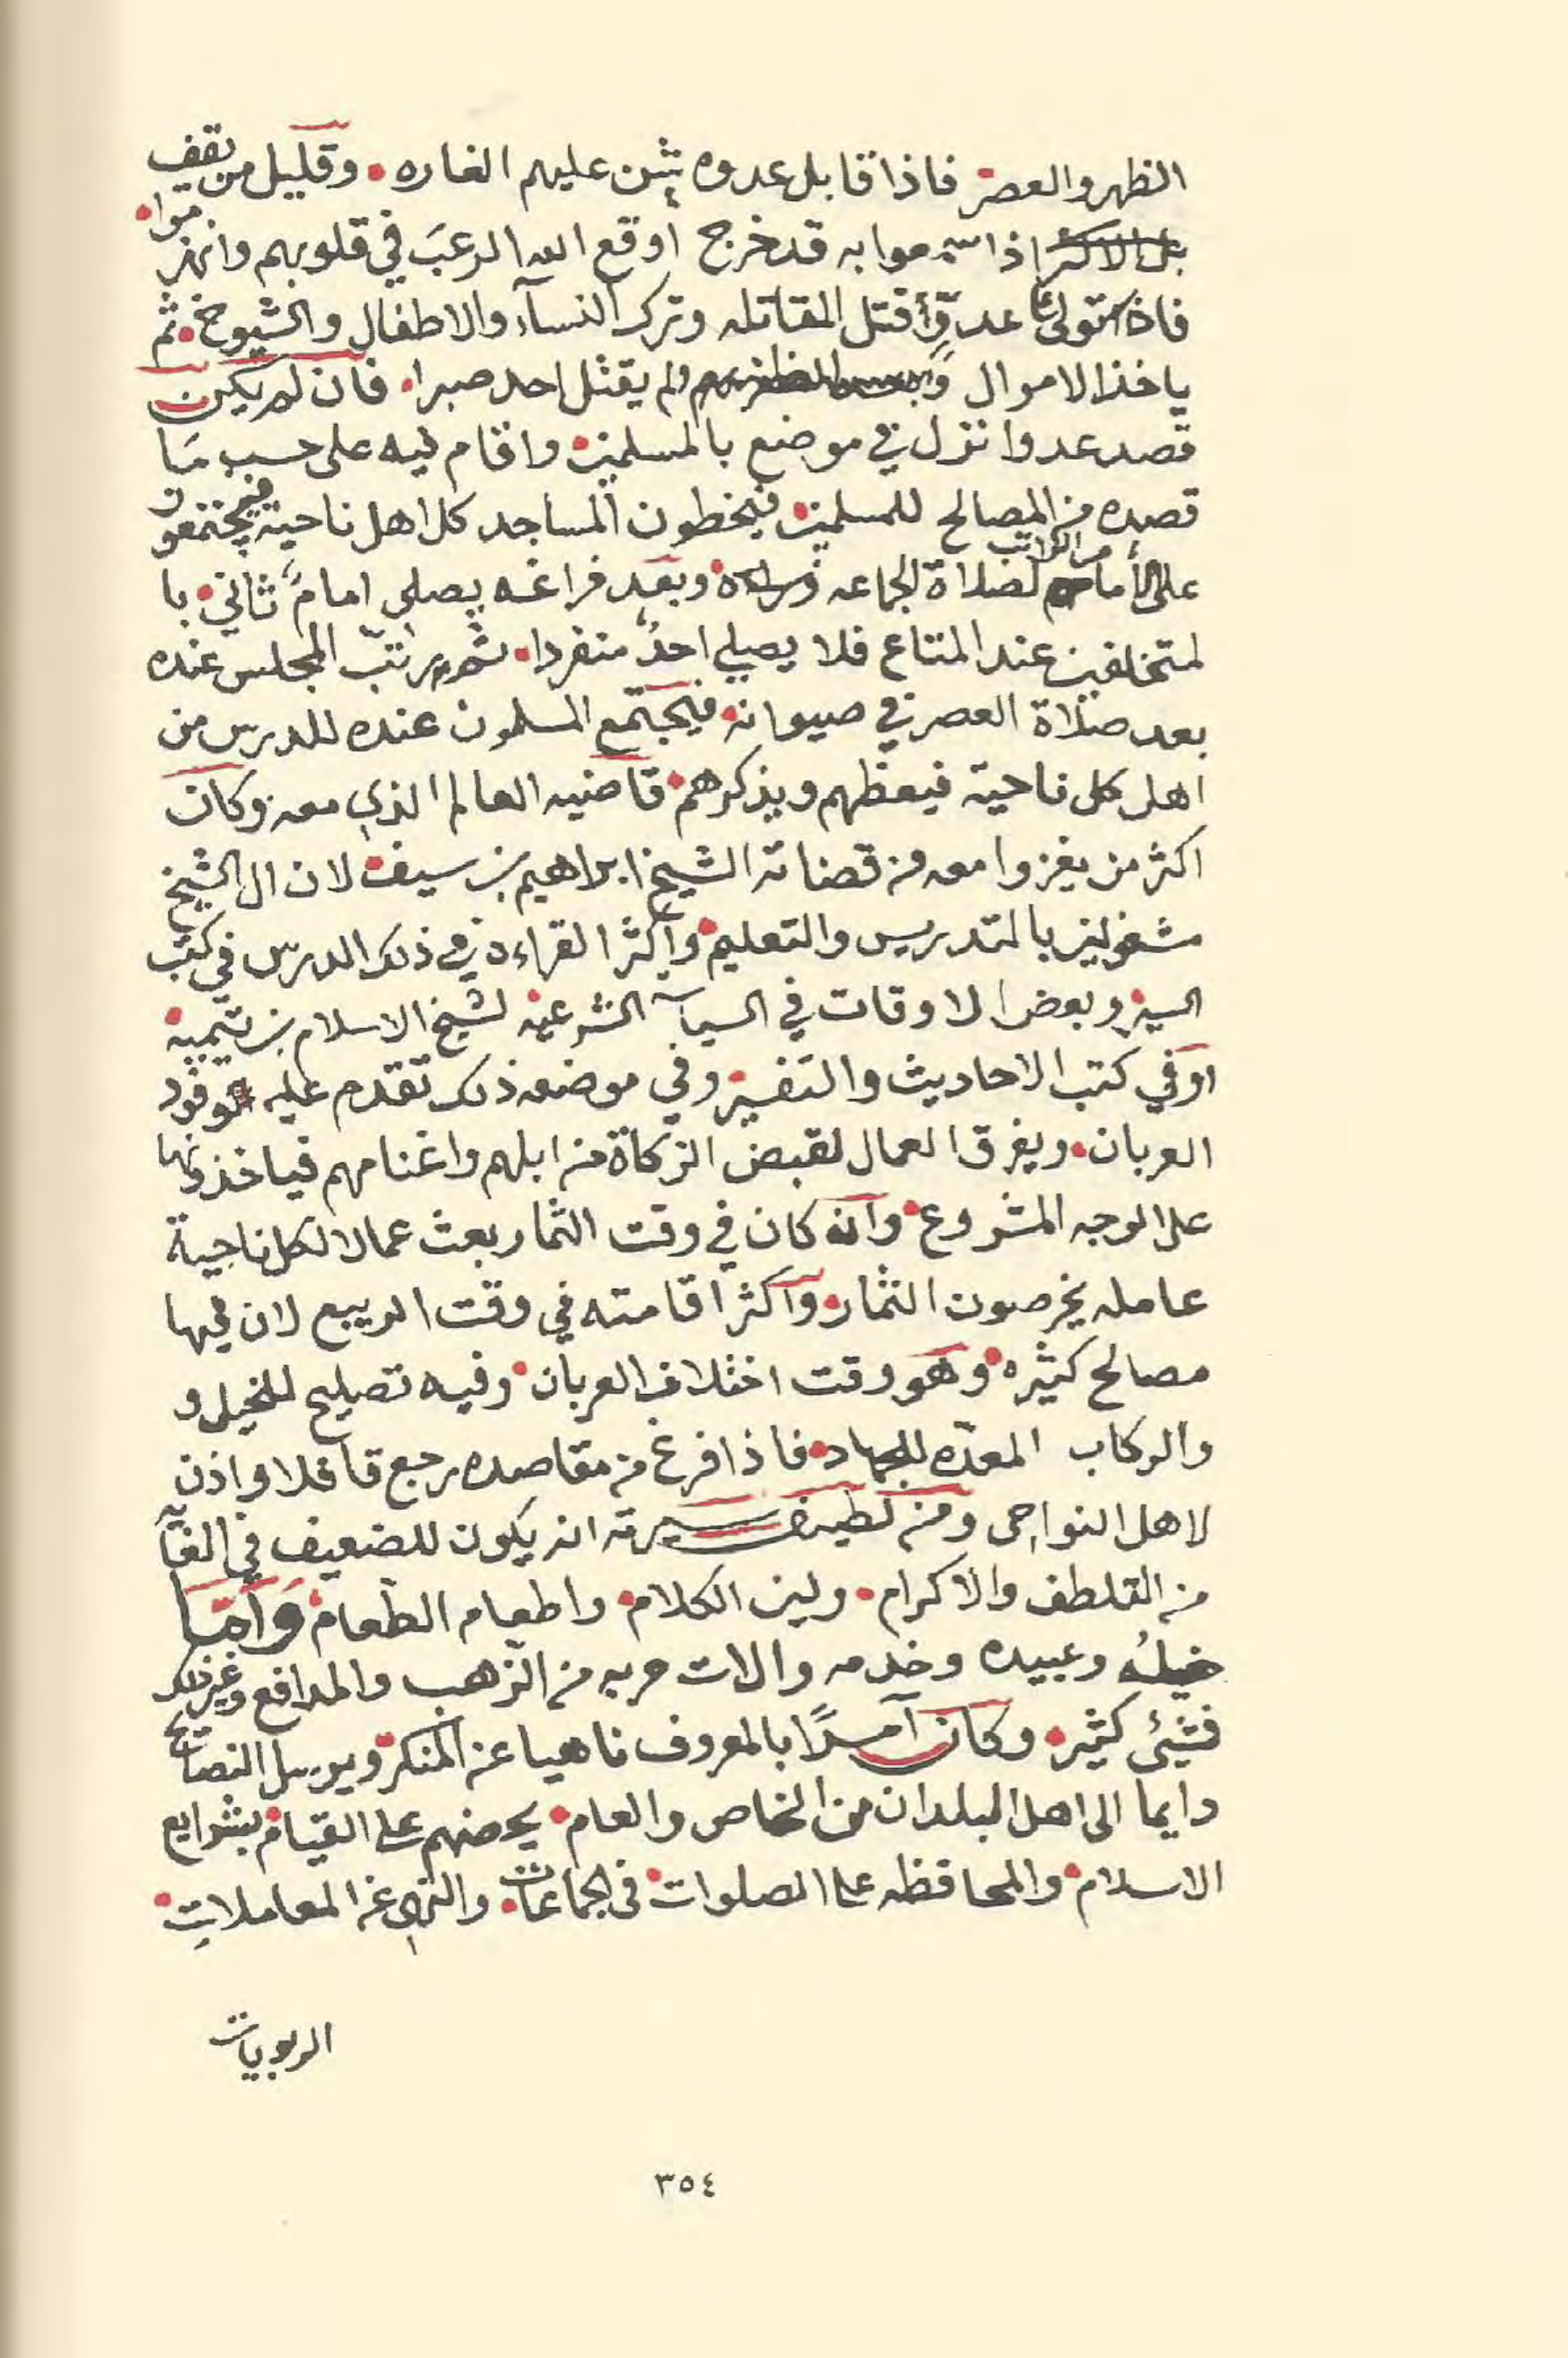 الظهر والعصر فاذا قابل عدوه شن عليهم الغاره وقليل من يقف
بل الاكثر اذا سمعوا به قد خرج أوقع الله الرعبَ في قلوبهم وانهزموا
فاذا استولى على عدوّ أقتل المقاتله وترك النسآء والاطفال والشيوخ ثم
ياخذ الاموال ولم يقتل احد صبرا فان لم يكن
قصد عدوا نزل في موضع بالمسلمين واقام فيه على حسب مَا
قصده من المصالح للمسلمين فيخطون المساجد كل اهل ناحية فيجتمعون
على الأمام الراتب لصلاة الجماعه وبعد فراغه يصلي امامً ثاني با
لمتخلفين عند المتاع فلا يصلي احدُ منفردا ثم يرتب المجلس عنده
بعد صلاة العصر في صيوانه فيجتمع المسلمون عنده للدرس من
اهل كل ناحية فيعظهم ويذكرهم قاضيه العالم الذي معه وكان
اكثر من يغزوا معه من قضاته الشيخ ابراهيم بن سيف لان ال الشيخ
مشغولين بالتدريس والتعليم وآكثر القراءه في ذلك الدرس في كتب
السير وبعض الاوقات في السياسة الشرعيه لشيخ الاسلام بن تيميه
اوفي كتب الاحاديث والتفسير وفي موضعه ذلك تقدم عليه وفود
العربان ويفرق العمال لقبض الزكاة من ابلهم واغنامهم فياخذونها
على الوجه المشروع وآنه كان في وقت الثمار بعث عمالا لكل ناحية
عامله يخرصون الثمار وآكثر اقامته في وقت الربيع لان فيها
مصالح كثيره وهو وقت اختلاف العربان وفيه تصليح للخيل و
والركاب المعدّه للجهاد فاذا فرغ من مقاصده رجع قافلا واذن
لاهل النواحى ومن لطيف سيرته انه يكون للضعيف في الغآ
من التلطف والاكرام ولين الكلام واطعام الطعام وَآمّا
خيلُه وعبيده وخدمه والات حربه من الزهب والمدافع وغير ذلك
فشيئ كثير وكان آمرًا بالمعروف ناهيا عن المنكر ويرسل النصائح
دايما الى اهل البلدان من الخاص والعام يحضهم على القيام بشرايع
الاسلام والمحافظه على الصلوات في الجماعات والنهي عن المعاملات
الربويات
٣٥٤